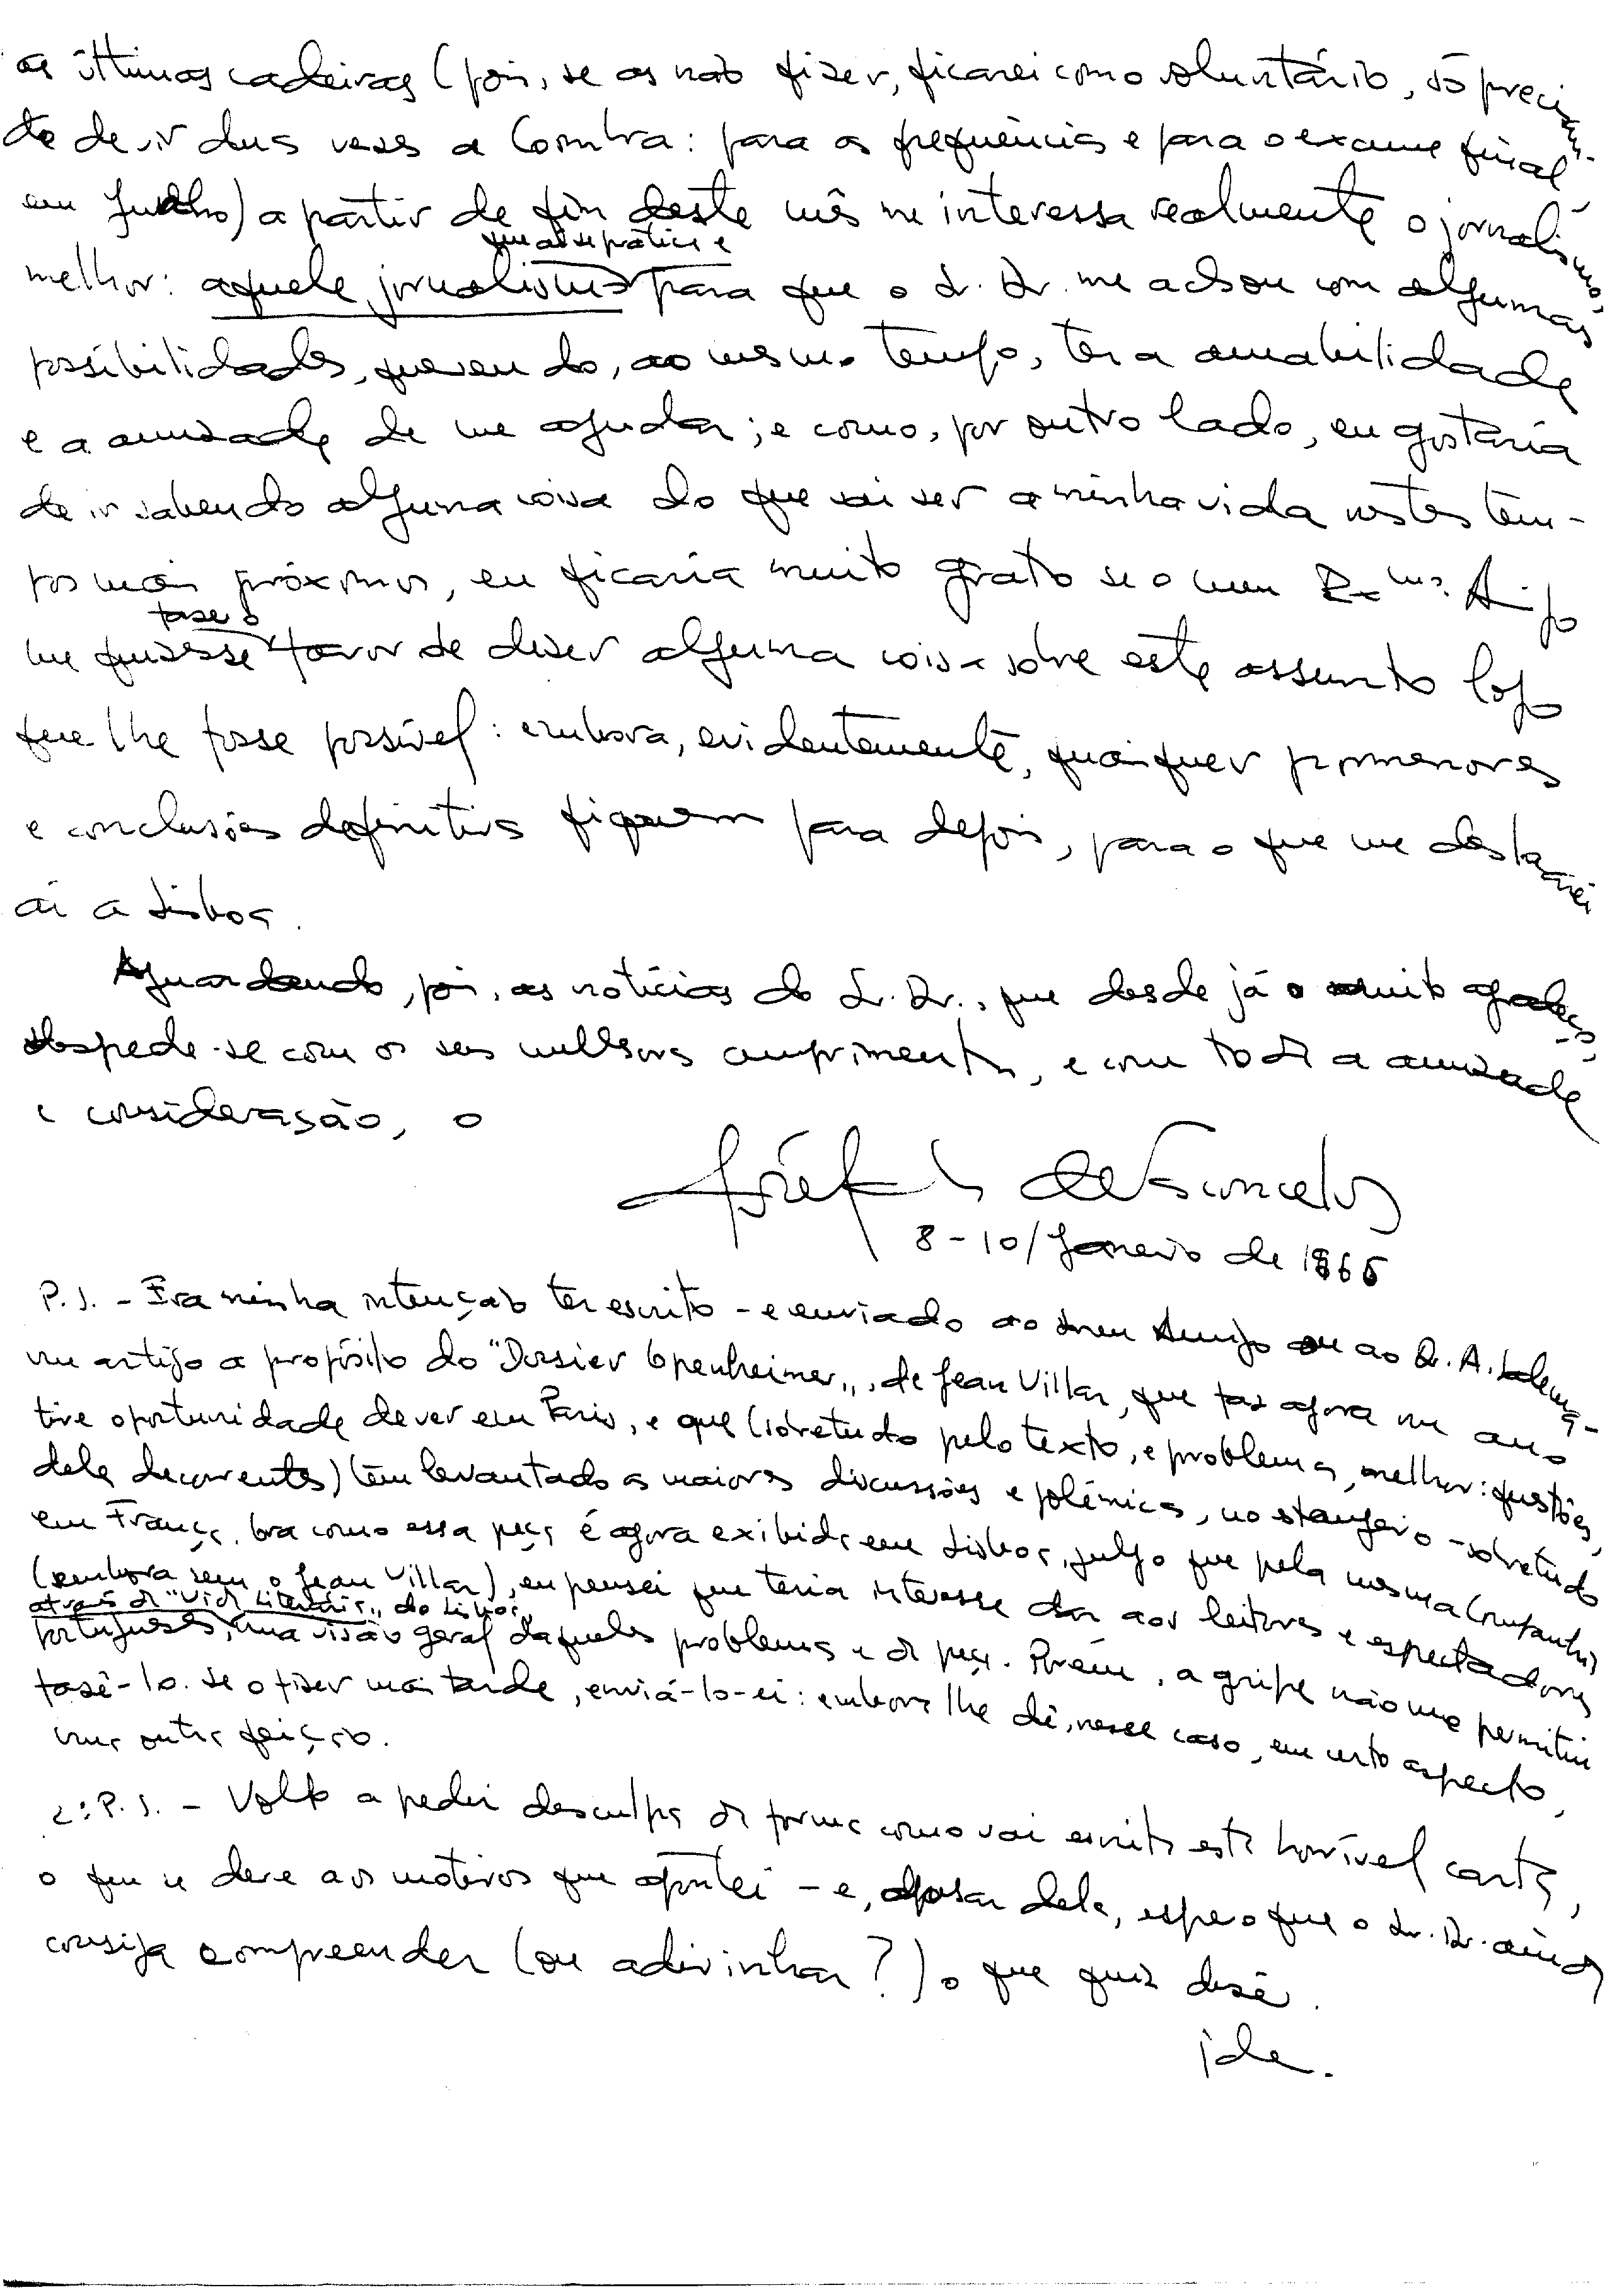 as últimas cadeiras (pois, se as não fizer, ficarei como voluntário, só precisan-
do de vir duas vezes a Coimbra: para as frequências e para o exame final
em Julho) a partir de fim deste mês me interessa realmente o jornalismo,
que aí se pratica e
melhor: aquele jornalismo para que o Sr. Dr. me achou com algumas
possibilidades, querendo, ao mesmo tempo, ter a amabilidade
e a amizade de me ajudar; e como, por outro lado, eu gostaria
de ir sabendo alguma coisa do que vai ser a minha vida nestes tem-
pos mais próximos, eu ficaria muito grato se o meu Exmo. Amigo
fazer o
me quizesse favor de dizer alguma coisa sobre este assunto logo
que lhe fosse possível: embora, evidentemente, quaisquer pormenores
e conclusões definitivas fiquem para depois, para o que me deslocarei
aí a Lisboa.
Aguardando, pois, as notícias do Sr. Dr., que desde já muito agradeço,
despede-se com os seus melhores cumprimentos, e com toda a amizade
e consideração, o
de Vasconcelos
8-10/Janeiro de 1966
P.S. - Era minha intenção ter escrito - e enviado ao meu Amigo ou ao Dr. A.
um artigo a propósito do "Dossier Openheimer", de Jean Villar, que faz agora um ano
tive oportunidade de ver em Paris, e que (sobretudo pelo texto, e problemas, melhor: questões,
dele decorrentes) têm levantado as maiores discussões e polémicas, no stangeiro - sobretudo
em França. Ora como essa peça é agora exibida em Lisboa, julgo que pela mesma Companhia
(embora sem o Jean Villar), eu pensei que teria interesse dar aos leitores e espectadores
através da "Vida Literária", do Lisboa,
portugueses, uma visão geral daqueles problemas e da peça. Porém, a gripe não me permitiu
fazê-lo. Se o fizer mais tarde, enviá-lo-ei: embora lhe dê, nesse caso, em certo aspecto,
uma outra feição.
2º P.S. - Volto a pedir desculpa da forma como vai escrita esta horrível carta,
o que se deve aos motivos que apontei - e, apesar dela, espero que o Sr. Dr. ainda
consiga compreender (ou adivinhar?) o que quiz dizer.